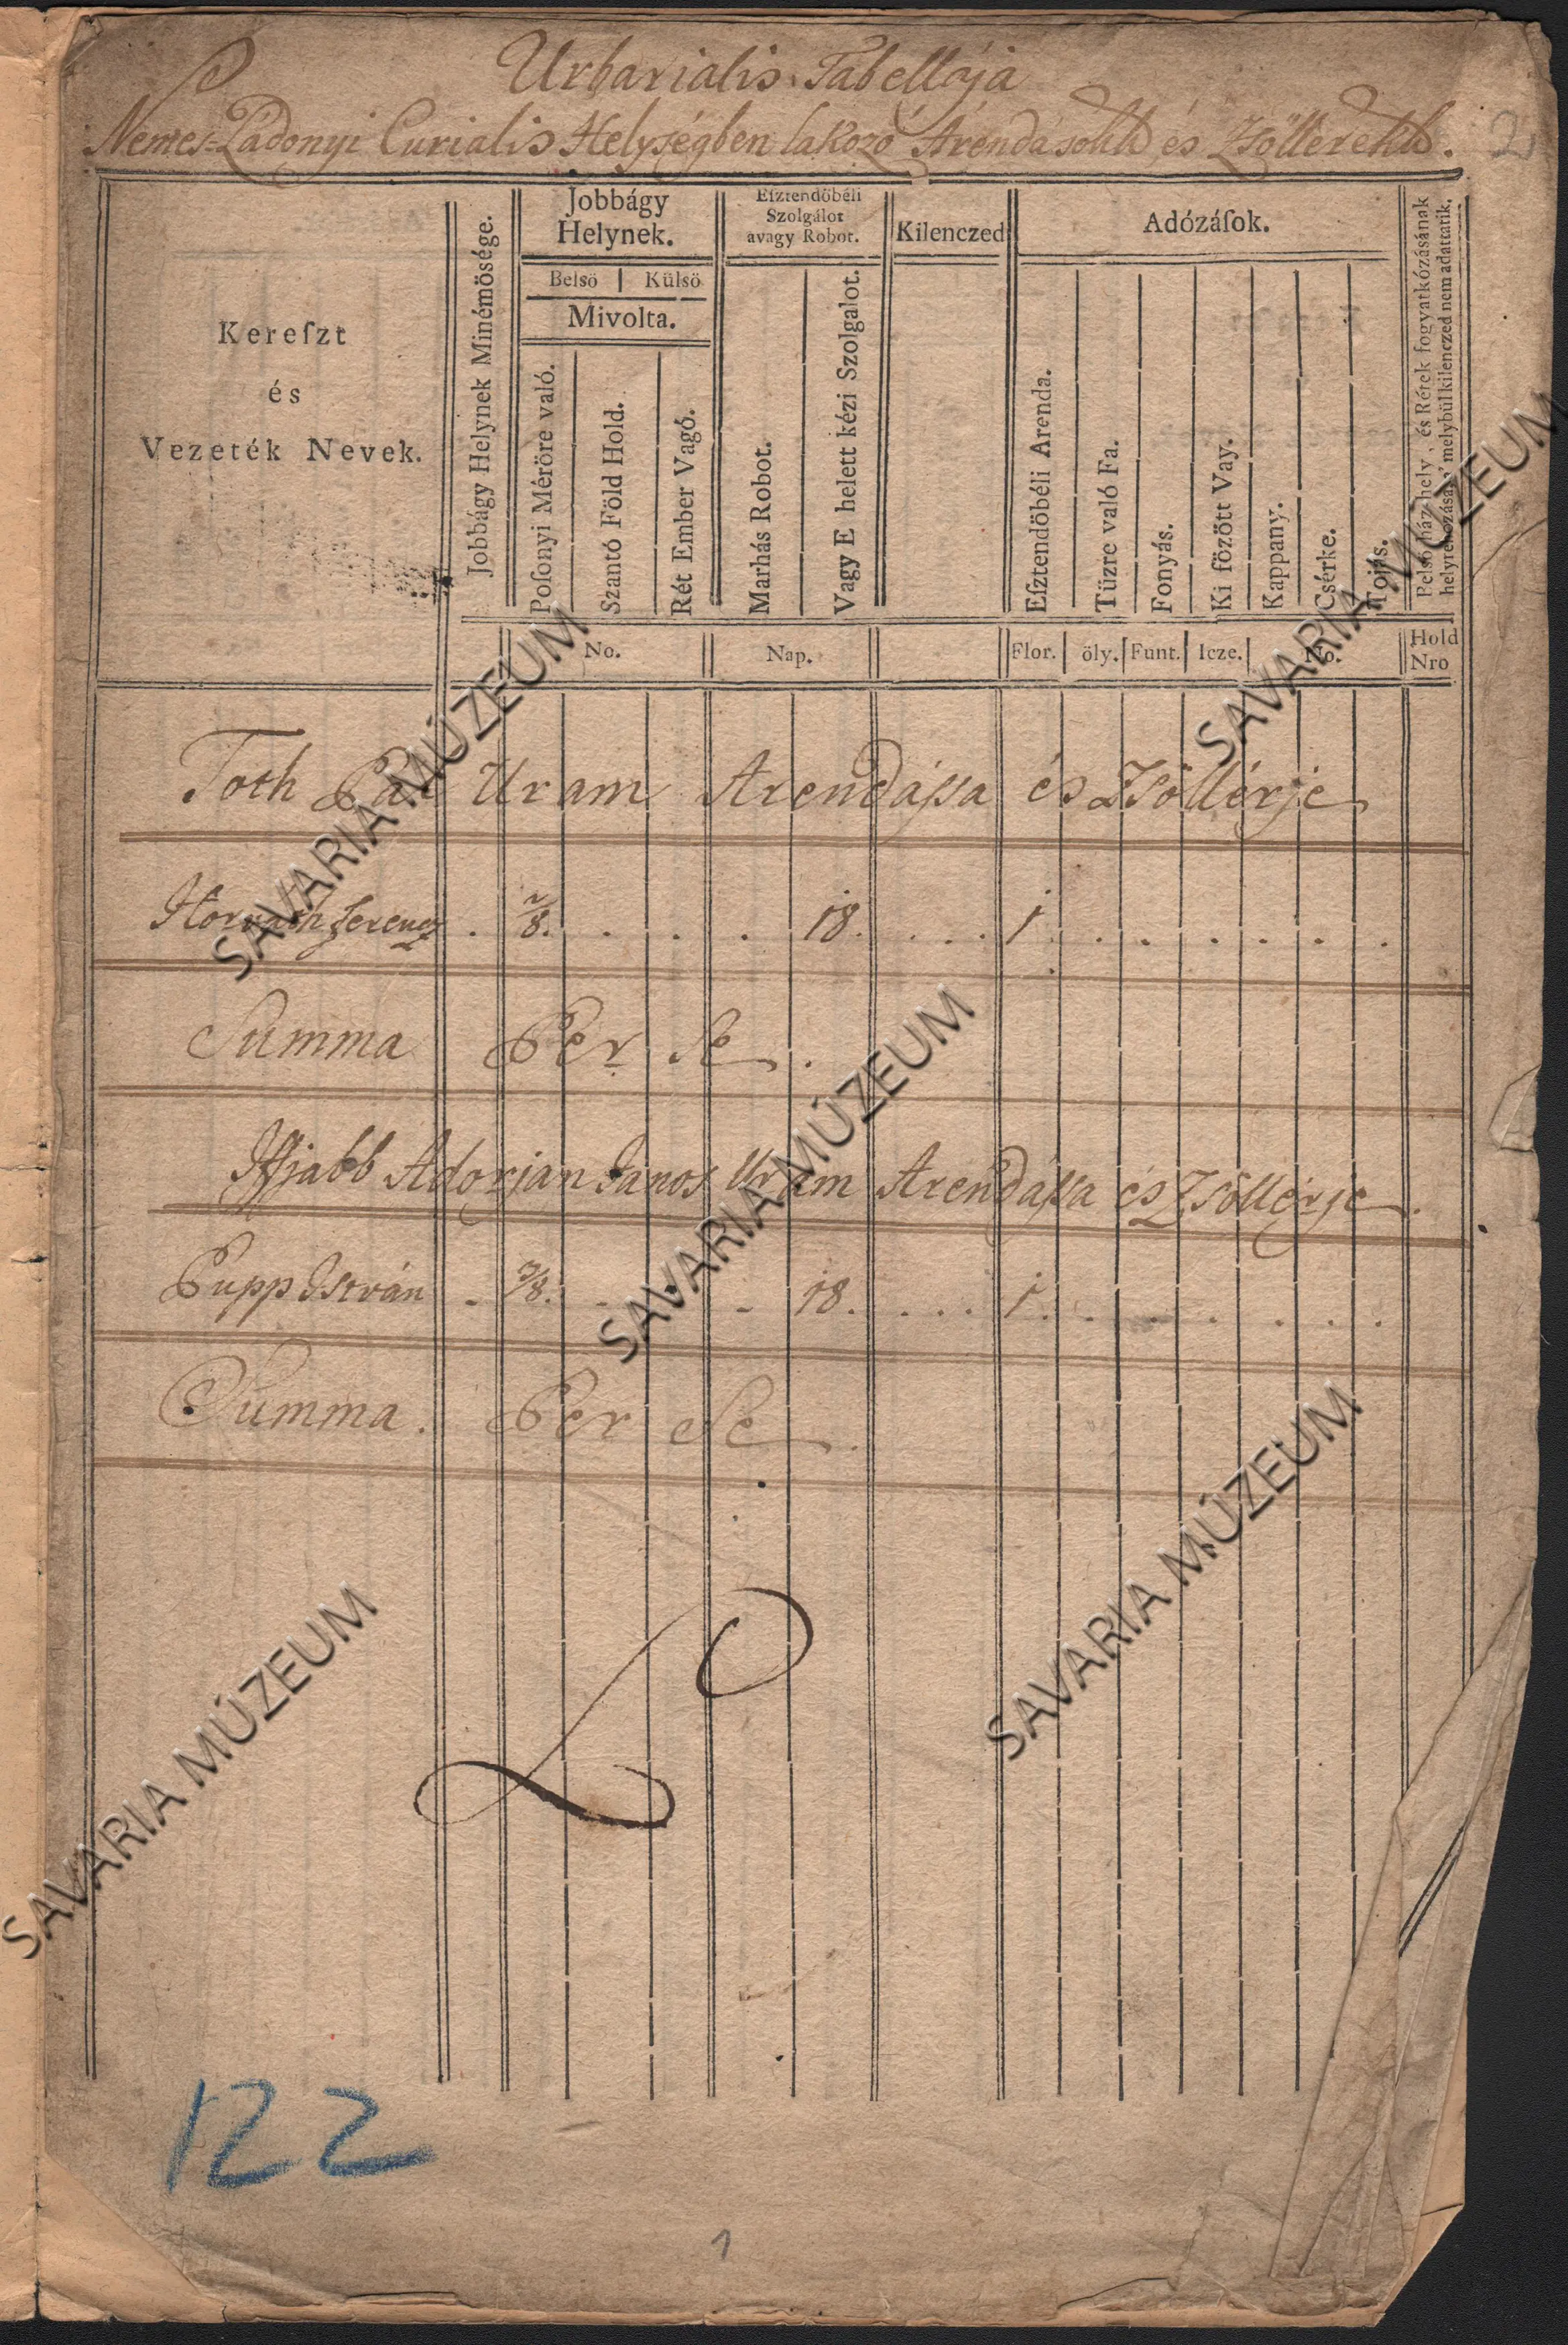 Urbarialis Tabellája
Nemes-Ládonyi Curialis Helységben lakozó Árendásokk és Zsöllérekk. 2
Kereſzt
és
Vezeték Nevek.
Jobbágy Helynek Minémöſége.
Jobbágy
Helynek.
Belsö | Külsö
Mivolta.
Poſonyi Méröre való.
Szantó Föld Hold.
Rét Ember Vagó.
Eſztendöbéli
Szolgálot
avagy Robot.
Marhás Robot.
Vagy E helett kézi Szolgalot.
Kilenczed
Adózáſok.
Eſztendöbéli Arenda.
Tüzre való Fa.
Fonyás.
Ki fözött Vay.
Kappany.
Csérke.
Tojás.
helly, és Rétek fogyatkózásának
melybül kilenczed nem adattatik.
No.
Nap.
Flor. öly. Funt. Icze. No.
Hold
Nro
Toth Pál Uram Arendássa és Zsöllérje
Horvath Ferencz . 2/8. . . . . 18. . . . 1 . . . . . . .
Summa Per Se .
Iffjabb Adorjan János Uram Arendássa és Zsöllérje .
Pupp István . 3/8. . . . 18. . . . 1 . . . . . . .
Summa . Per Se .
122
1
SAVARIA MÚZEUM
SAVARIA MÚZEUM
SAVARIA MÚZEUM
SAVARIA MÚZEUM
SAVARIA MÚZEUM